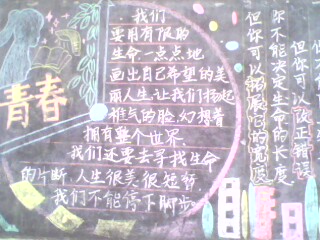 青春
我们
要用有限的
生命一点点地
画出自己希望的美
丽人生,让我们扬起
稚气的脸,幻想着
拥有整个世界.
我们还要去寻找生命
的片断.人生很美很短暂
我们不能停下脚步
你不能决定生命的长度
但你可以拓展它的宽度
但你可以改正错误